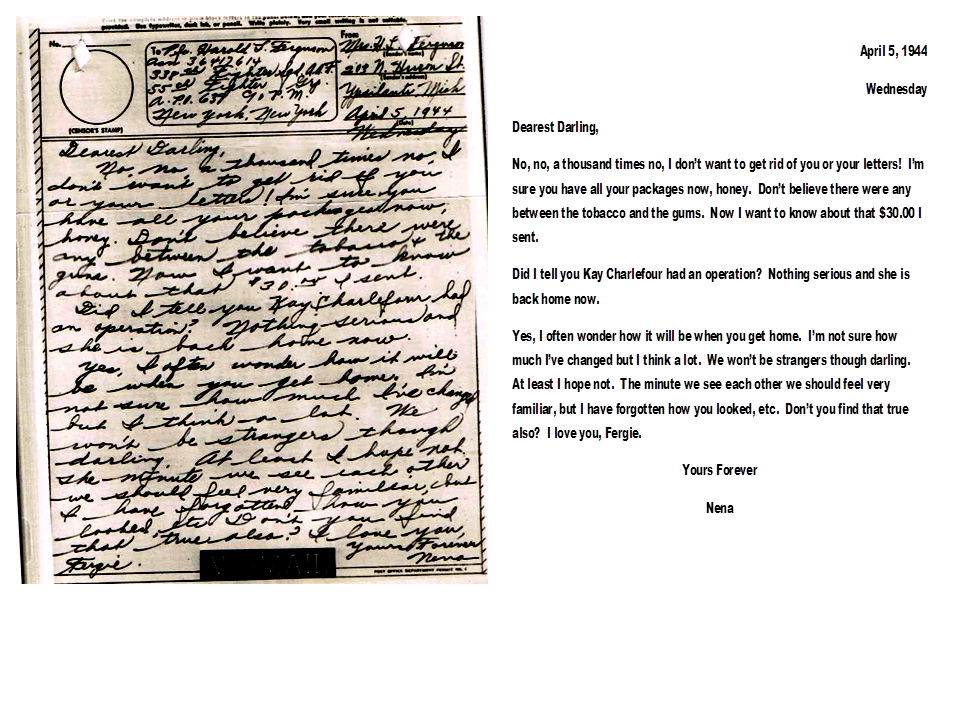 provided. Use typewriter, dark ink, or pencil. Write plainly. Very small writing is not suitable.
No.
(CENSOR'S STAMP)
To Pfc. Harold L. Ferguson
asn 36412614
338th Fighter Sqd. A.A.F.
55th Fighter Gp.
A.P.O. 637 % P.M.
New York, New York
From
Mrs. H. L. Ferguson
(Sender's name)
209 N. Huron St.
(Sender's address)
Ypsilanti, Mich
April 5, 1944
(Date)
Wednesday
Dearest Darling,
No, no, a thousand times no, I
don't want to get rid of you
or your letters! I'm sure you
have all your packages now,
honey. Don't believe there were
any between the tobacco & the
gums. Now I want to know
about that $30.00 I sent.
Did I tell you Kay Charlefour had
an operation? Nothing serious and
she is back home now.
Yes, I often wonder how it will
be when you get home. I'm
not sure how much I've changed
but I think a lot. We
won't be strangers though
darling. At least I hope not.
The minute we see each other
we should feel very familiar, but
I have forgotten how you
looked, etc. Don't you find
that true also? I love you,
Fergie.
Yours Forever
Nena
V-MAIL
POST OFFICE DEPARTMENT PERMIT NO. 1
April 5, 1944
Wednesday
Dearest Darling,
No, no, a thousand times no, I don't want to get rid of you or your letters! I'm
sure you have all your packages now, honey. Don't believe there were any
between the tobacco and the gums. Now I want to know about that $30.00 I
sent.
Did I tell you Kay Charlefour had an operation? Nothing serious and she is
back home now.
Yes, I often wonder how it will be when you get home. I'm not sure how
much I've changed but I think a lot. We won't be strangers though darling.
At least I hope not. The minute we see each other we should feel very
familiar, but I have forgotten how you looked, etc. Don't you find that true
also? I love you, Fergie.
Yours Forever
Nena